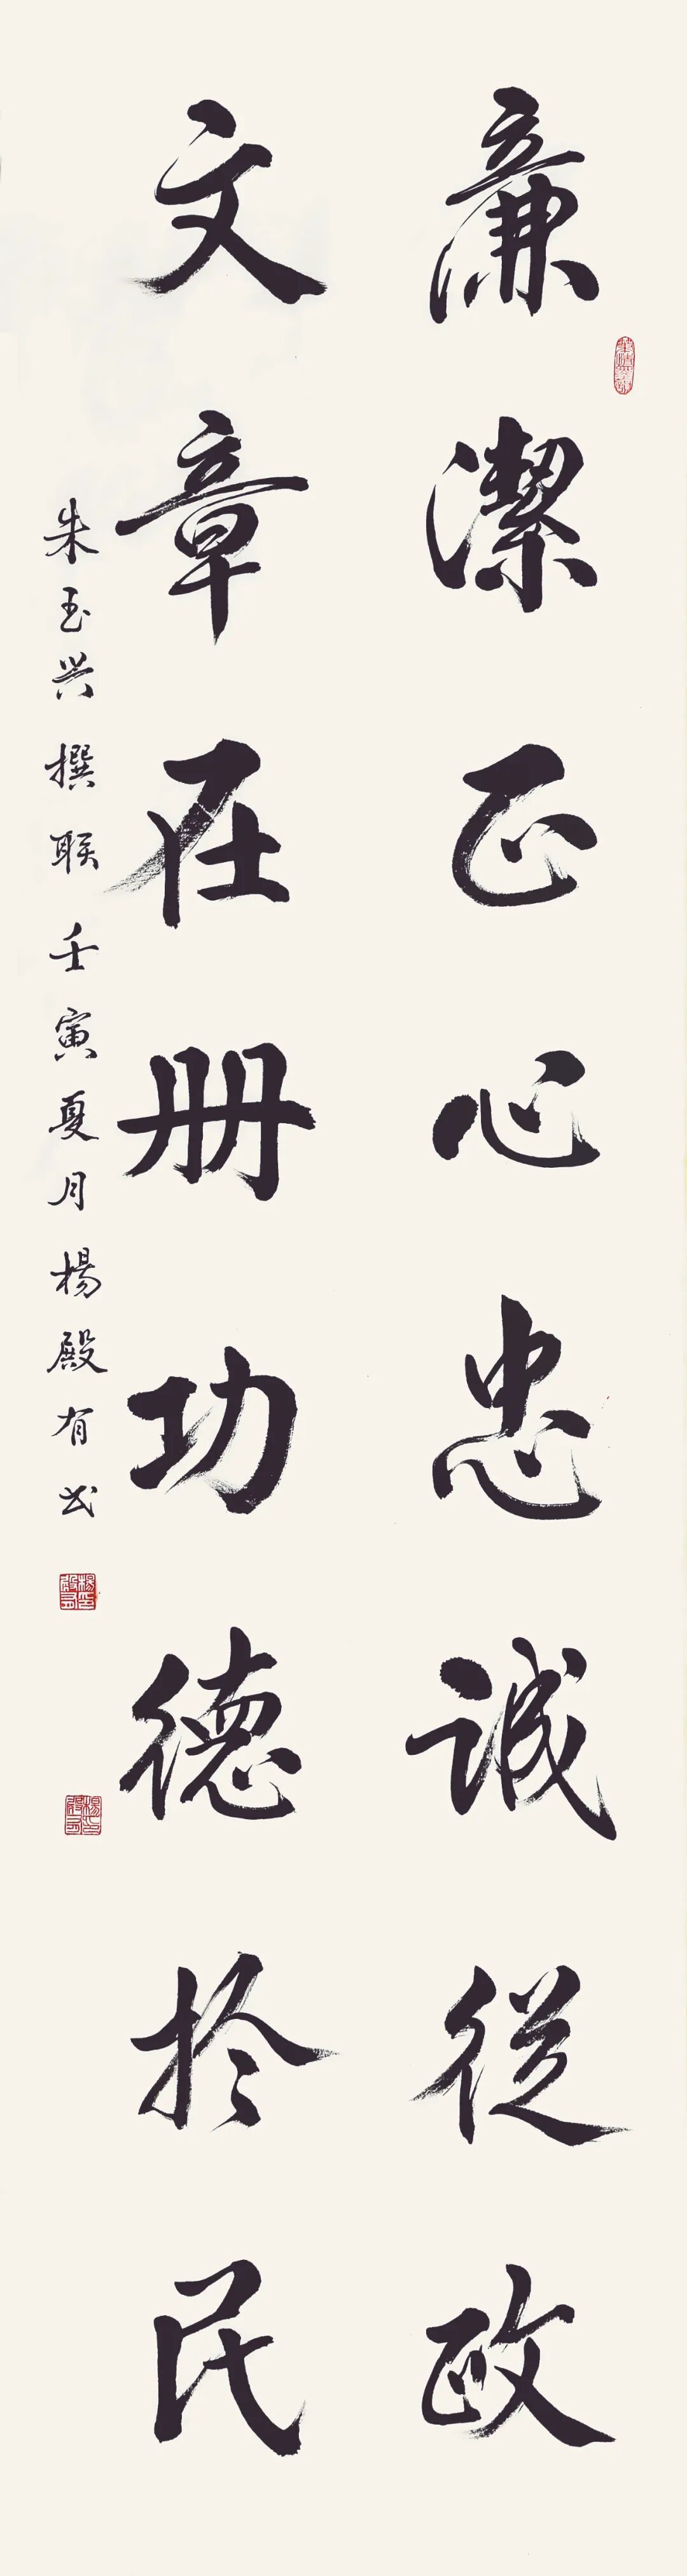 廉潔正心忠誠從政
文章在册功德於民
朱玉兴撰联壬寅夏月楊殿有书